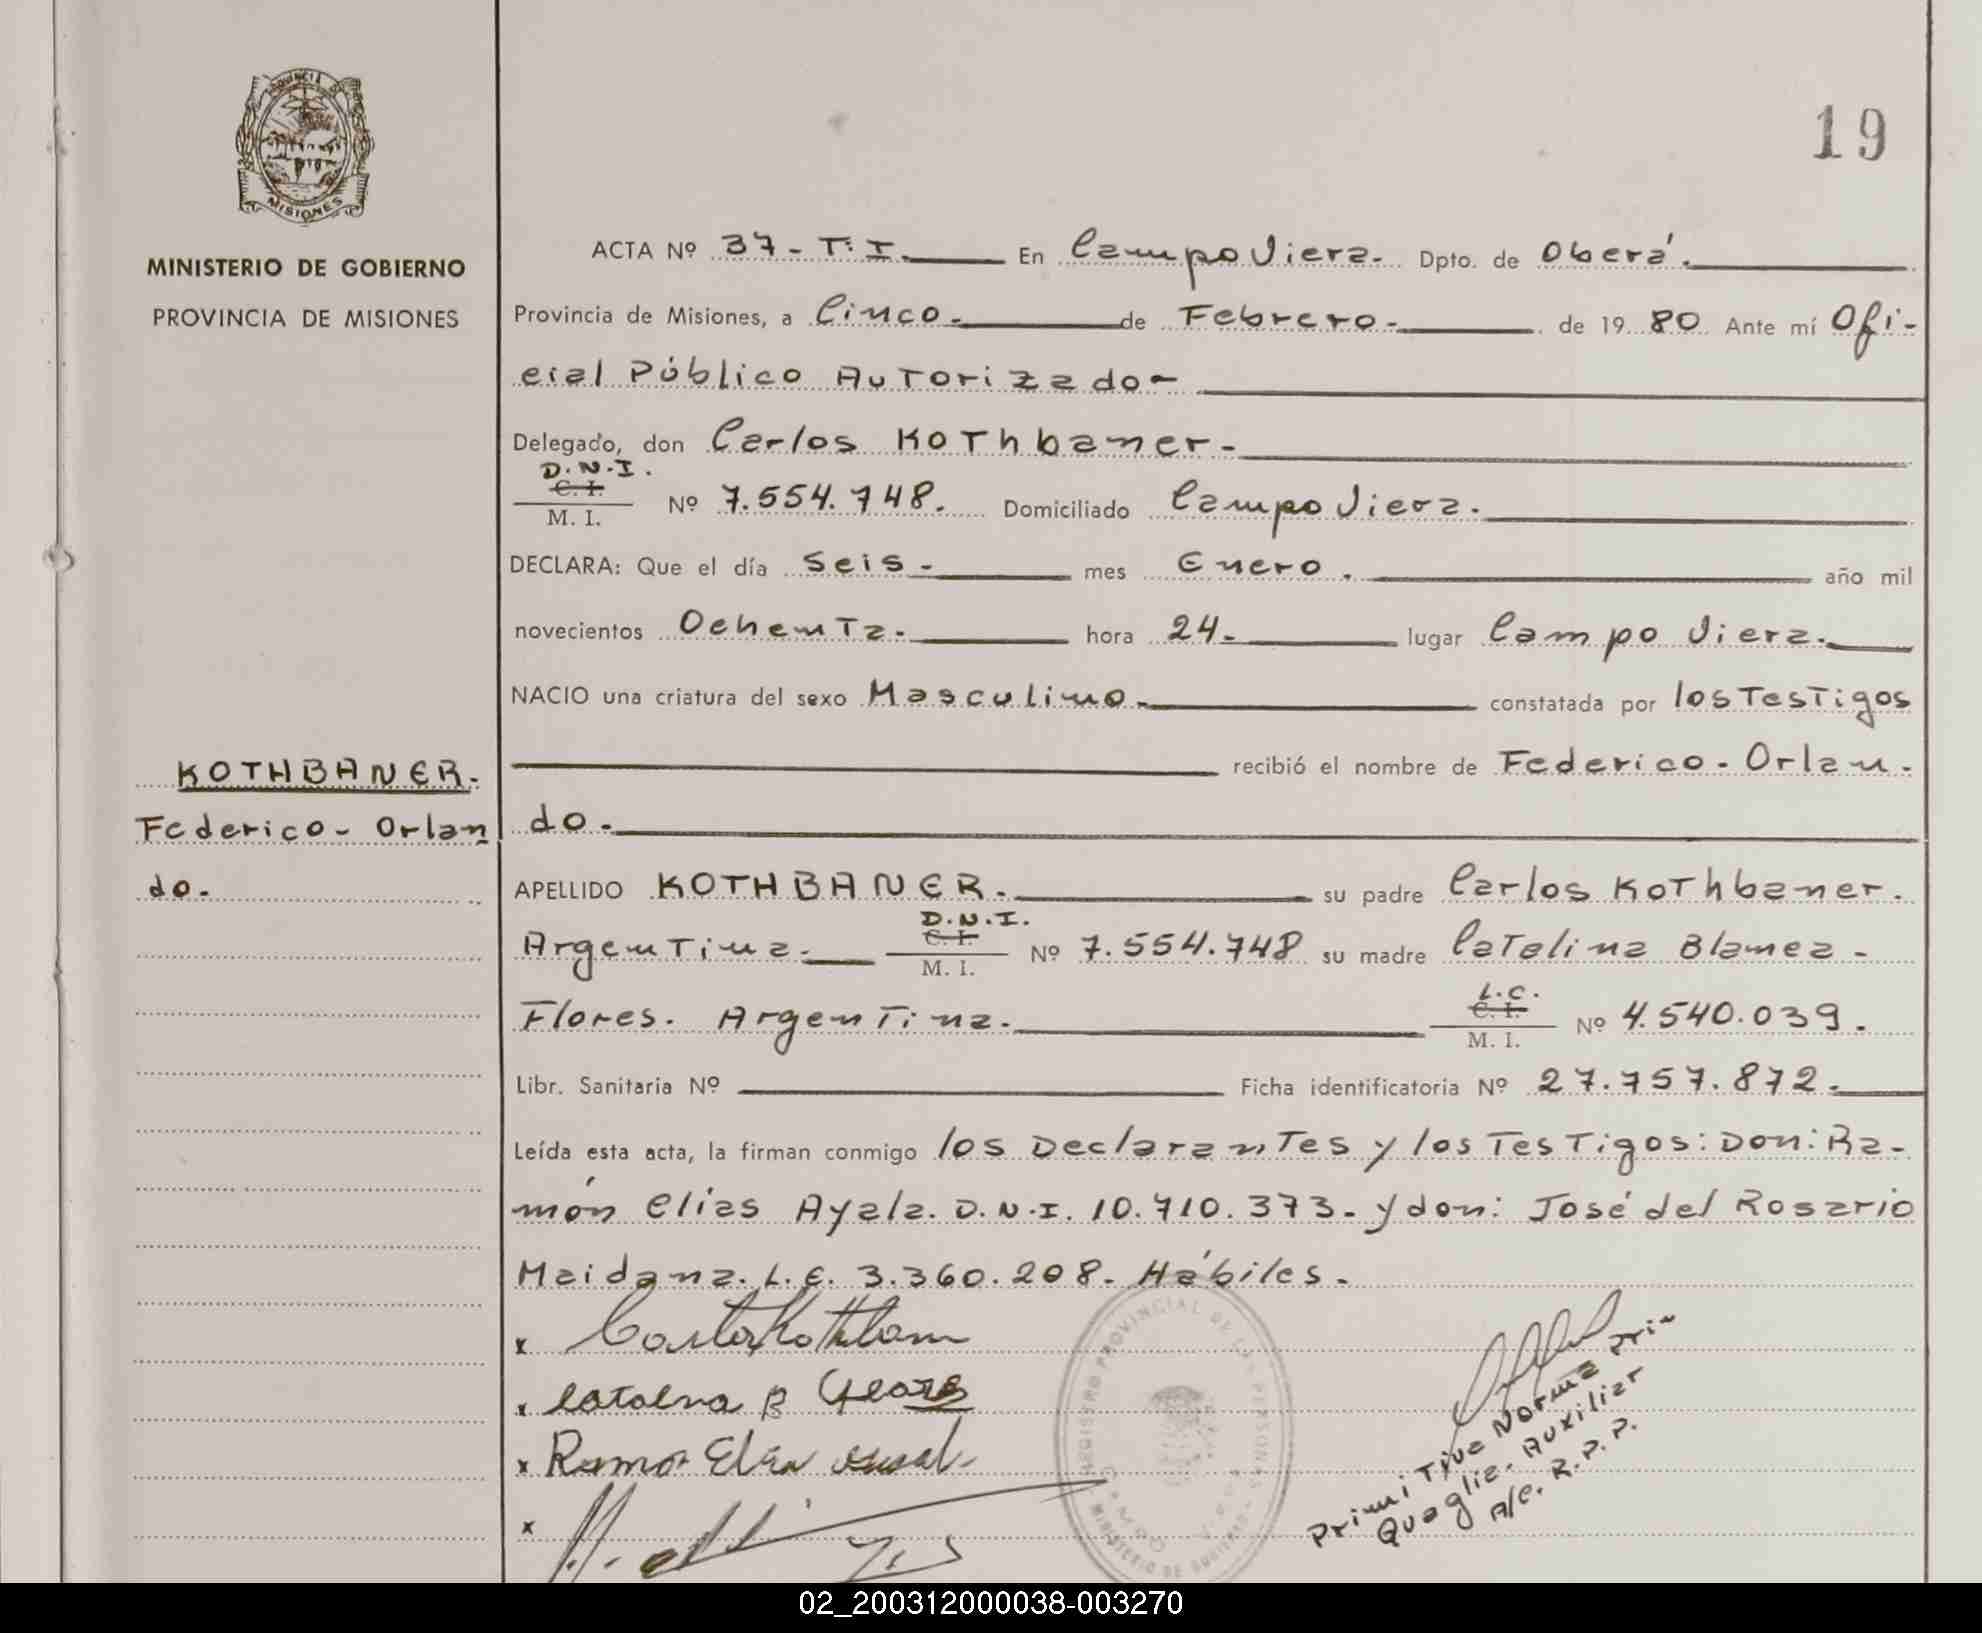 PROVINCIA DE
MISIONES
MINISTERIO DE GOBIERNO
PROVINCIA DE MISIONES
19
ACTA Nº 37-T.I. En Campo Viera. Dpto. de Oberá.
Provincia de Misiones, a Cinco. de Febrero. de 1980 Ante mí Ofi-
cial Público Autorizado-
Delegado, don Carlos Kothbaner.
D.N.I.
C. I.
M. I. Nº 7.554.748. Domiciliado Campo Viera.
DECLARA: Que el día Seis. mes Enero. año mil
novecientos Ochenta. hora 24. lugar Campo Viera.
NACIO una criatura del sexo Masculino. constatada por los Testigos
recibió el nombre de Federico. Orlan-
do.
KOTHBANER.
Federico- Orlan
do.
APELLIDO KOTHBANER. su padre Carlos Kothbaner.
D.N.I.
C. I.
Argentina. M. I. Nº 7.554.748 su madre Catalina Blanca-
L.C.
C. I.
Flores. Argentina. M. I. Nº 4.540.039.
Libr. Sanitaria Nº Ficha identificatoria Nº 27.757.872.
Leída esta acta, la firman conmigo los Declarantes y los Testigos: Don: Ra-
món Elias Ayala. D.N.I. 10.710.373. y don: José del Rosario
Maidana. L.E. 3.360.208. Hábiles.
x
x Catalina B Flores
x Ramon Elias
x
REGISTRO PROVINCIAL DE LAS PERSONAS
MINISTERIO DE GOBIERNO
Primitiva Norma
Quaglia. Auxiliar
A/C. R.P.P.
02_200312000038-003270